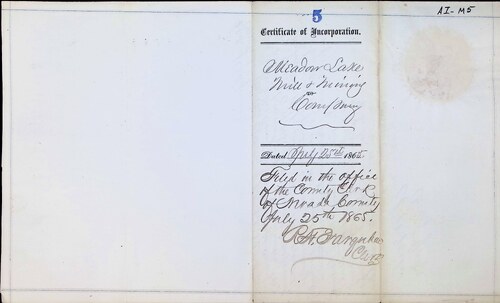 5
AI-M5
Certificate of Incorporation.
Meadow Lake
Mill & Mining
Company
Dated July 25th 1865.
Filed in the office
of the County Clerk
of Nevada County
July 25th 1865.
R. H.
Clerk